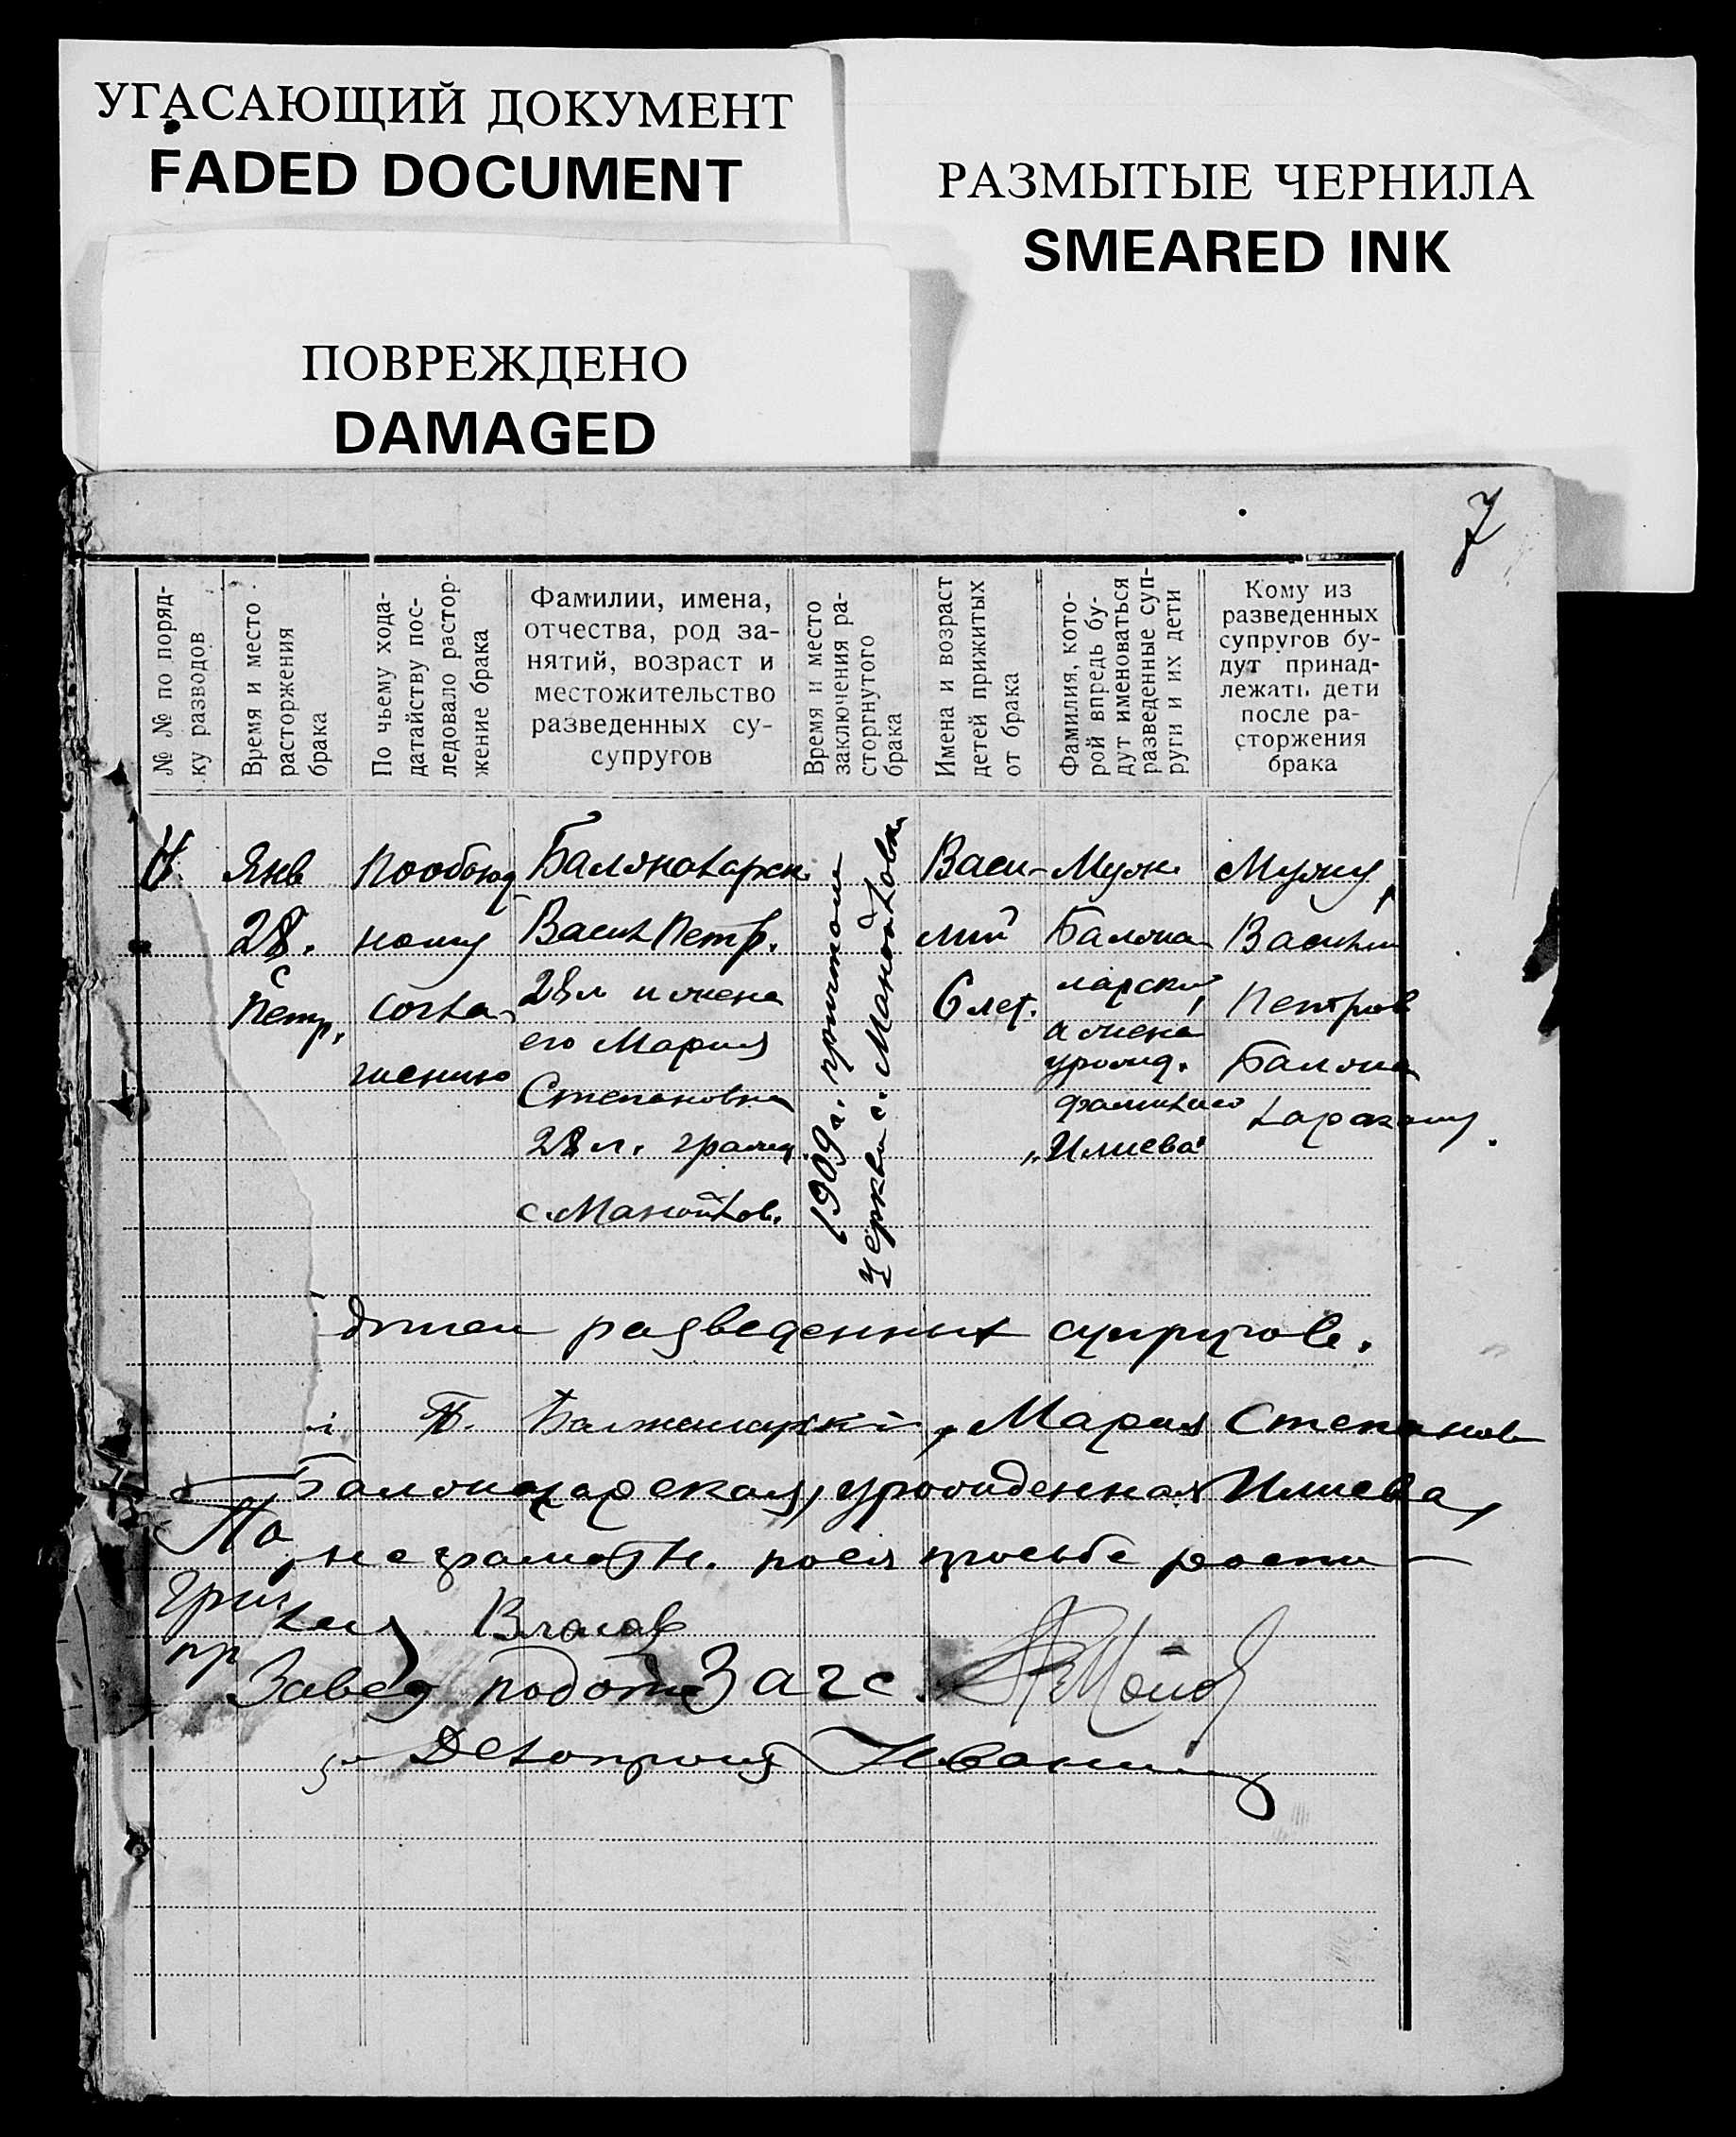 УГАСАЮЩИЙ ДОКУМЕНТ
FADED DOCUMENT
РАЗМЫТЫЕ ЧЕРНИЛА
SMEARED INK
ПОВРЕЖДЕНО
DAMAGED
7
№ № по поряд-
ку разводов
Время и место
расторжения
брака
По чьему хода-
датайству пос-
ледовало растор-
жение брака
Фамилии, имена,
отчества, род за-
нятий, возраст и
местожительство
разведенных су-
супругов
Время и место
заключения ра-
сторгнутого
брака
Имена и возраст
детей прижитых
от брака
Фамилия, кото-
рой впредь бу-
дут именоваться
разведенные суп-
руги и их дети
Кому из
разведенных
супругов бу-
дут принад-
лежать дети
после ра-
сторжения
брака
Янв
28.
с
Петр.
По обоюд
ному
согла-
шению
Васил Петр.
28 л и жена
его Мария
Степановна
28 л. гражд
с. Манойлов.
1909 г. причтом
церкви с. Манойловки
Васи-
лий
6 лет.
Муж
Балжа
ларский,
а жена
урожд.
фамилию
„Илиева"
Мужу,
Василию
Петров
Балжа
ларскому.
разведенных супругов.
П. Балжаларскій, Мария Степанов
Балжаларская, урожденная Илиева,
На неграмотн. по ея просьбе роспи-
Власов
Завед подотд Загс.
Делопроиз